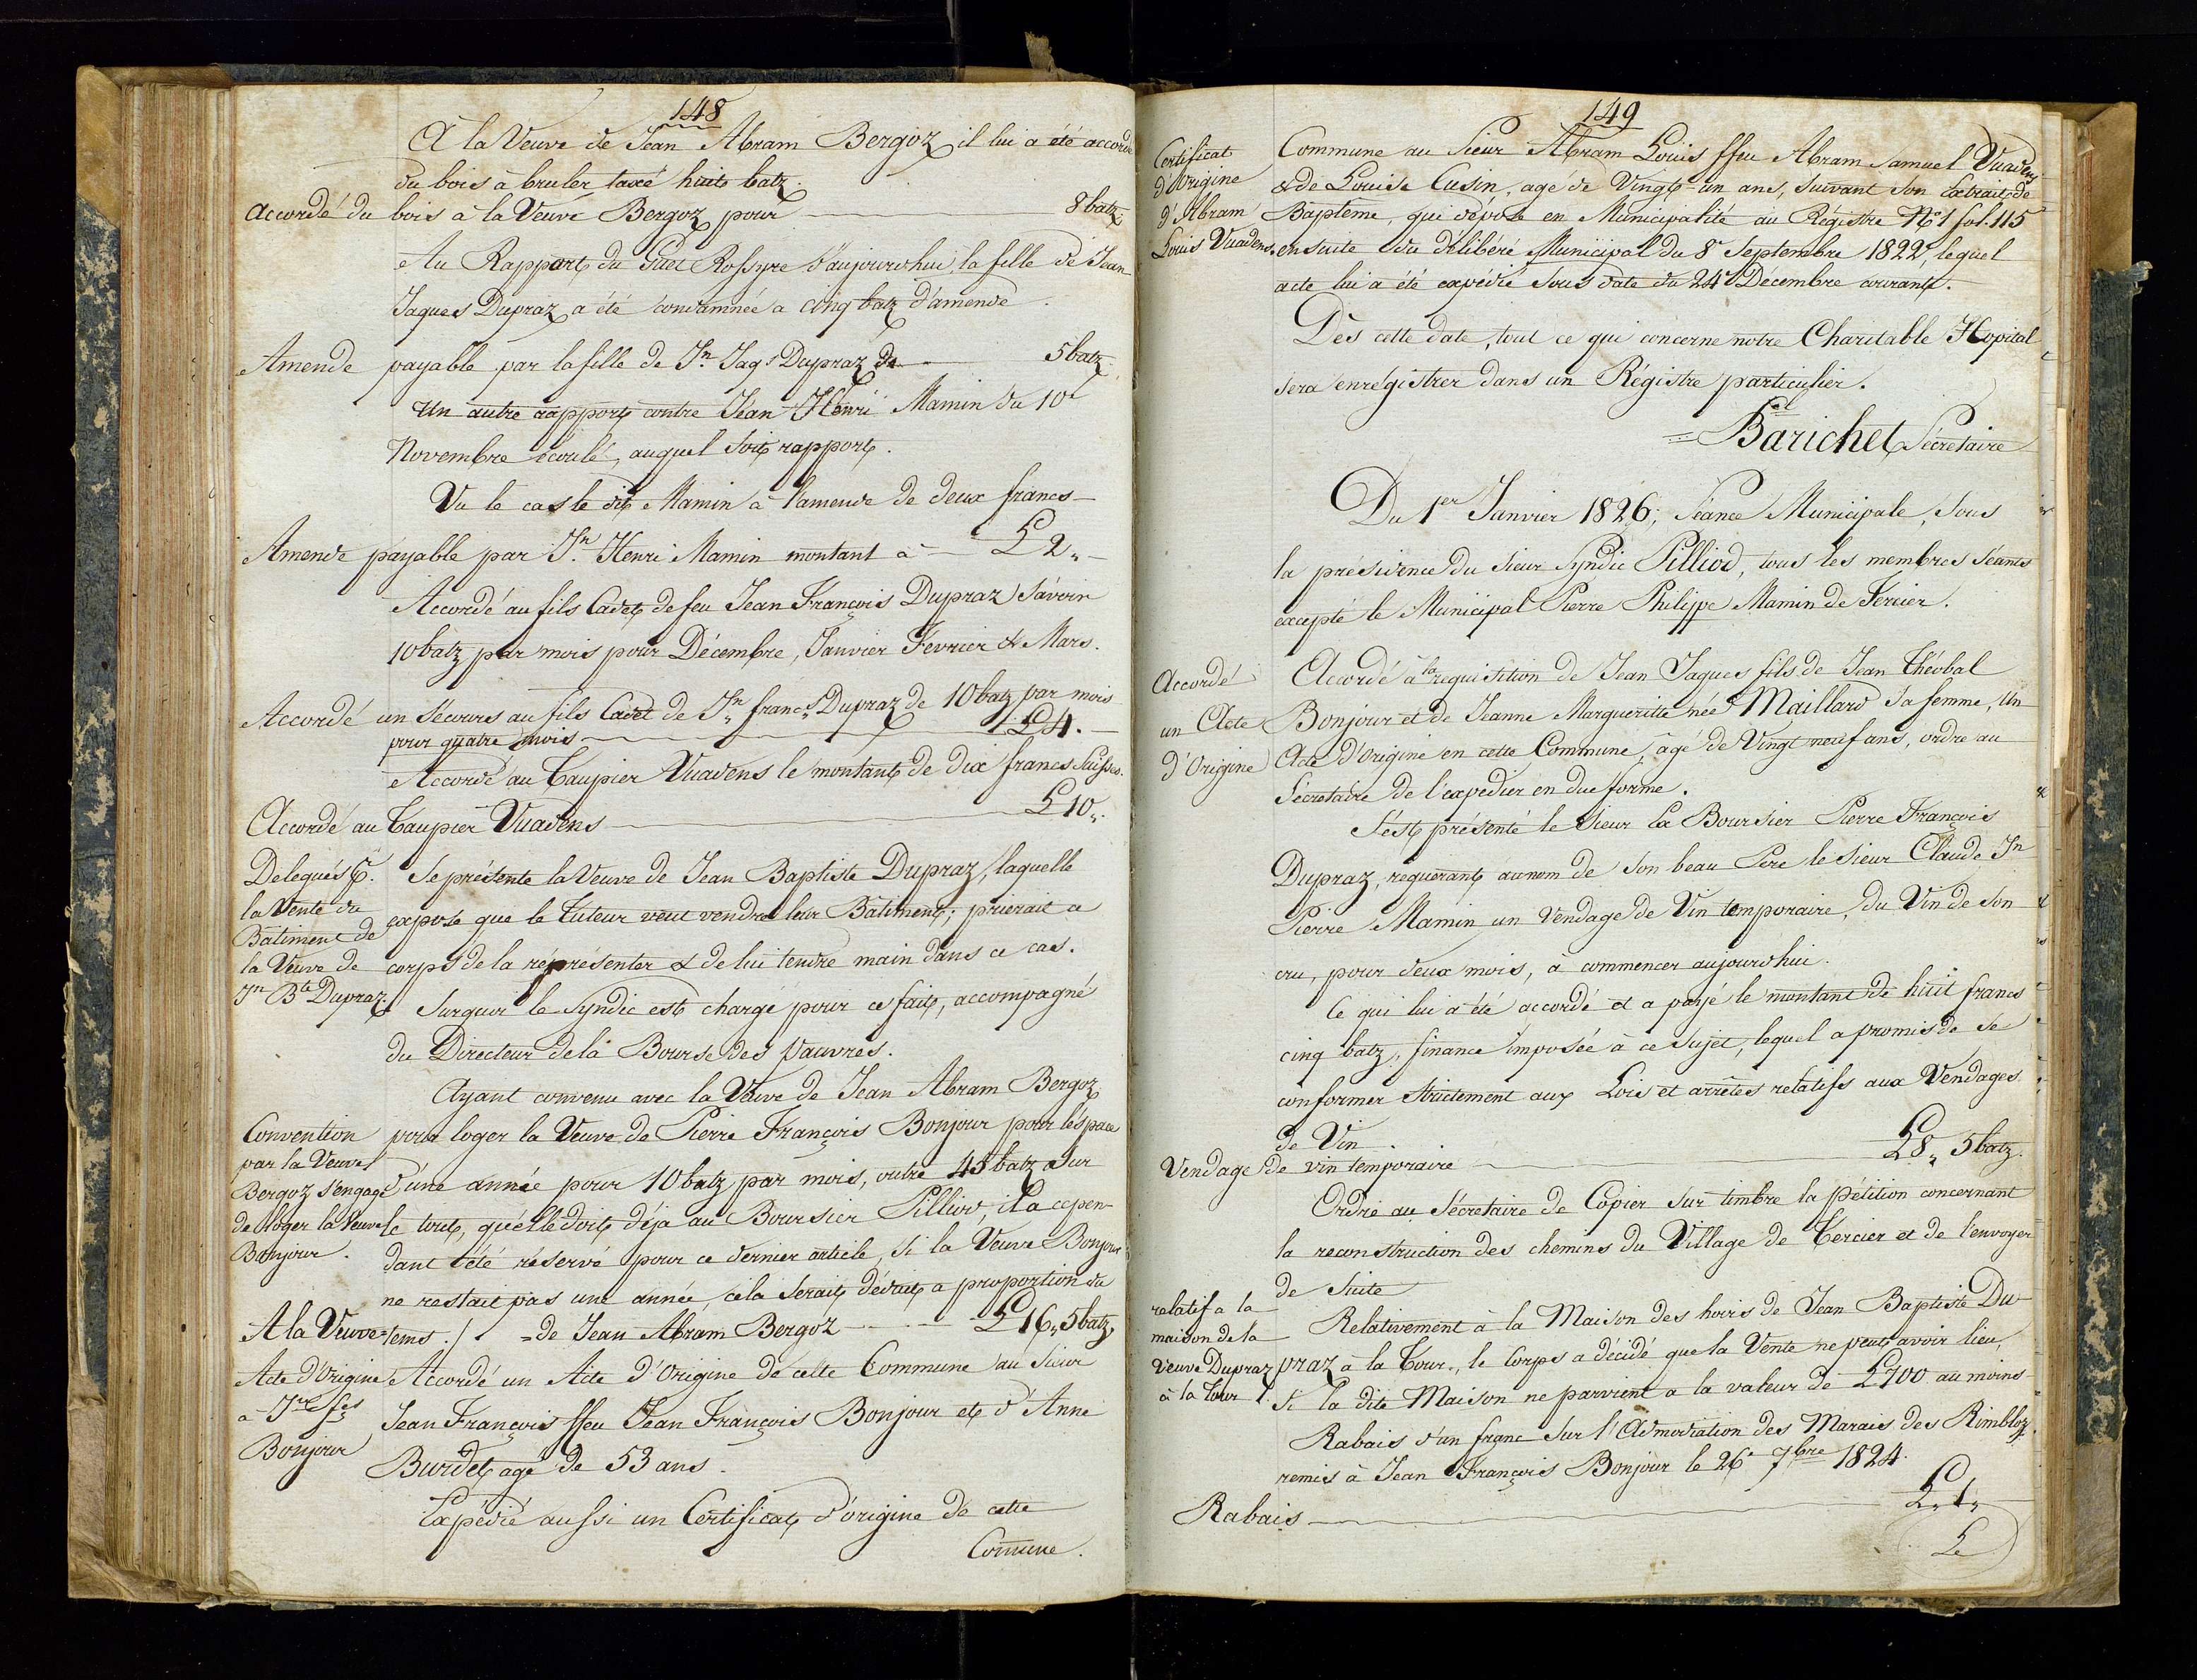 148
A la Veuve de Jean Abram Bergoz il lui a été accordé
du bois à bruler taxé huit batz.
Accordé du bois à la Veuve Bergoz pour 8 batz
Au Rapport du Guet Rossyre d'aujourdhui, la fille de Jean
Jaques Dupraz a été condamnée a cinq batz d'amende.
Amende payable par la fille de Jn. Jaqs Dupraz de 5 batz.
Un autre rapport contre Jean Henri Mamin du 10e
Novembre écoulé, auquel soit rapport.
Vu le cas le dit Mamin à l'amende de deux francs
Amende payable par Jn. Henri Mamin montant à £ 2„
Accordé au fils Cadet de feu Jean François Dupraz Sávoir
10 batz par mois pour Décembre, Janvier Fevrier & Mars.
Accordé un sécours au fils Cadet de Jn. francs. Dupraz de 10 batz par mois
pour quatre mois £ 4.
Accordé au Taupier Vuadens le montant de dix francs Suisses.
Accordé au Taupier Vuadens £ 10„.
Delegués p.
la Vente du
Batiment de
la Veuve de
Jn Bte Dupraz.
Se présente la Veuve de Jean Baptiste Dupraz, laquelle
expose que le Tuteur veut vendre leur Bâtiment; prierait ce
corps de la réprésenter & de lui tendre main dans ce cas.
Surquoi le Syndic est chargé pour ce fait, accompagné
du Directeur de la Bourse des pauvres.
Ayant convenu avec la Veuve de Jean Abram Bergoz
Convention
par la Veuve
Bergoz s'engage
de loger la Veuve
Bonjour.
pour loger la Veuve de Pierre François Bonjour pour léspace
d'une année pour 10 batz par mois, outre 45 batz sur
le tout, qu'elle doit déja au Boursier Pilliod, il a cepen-
dant été réservé pour ce dernier article, si la Veuve Bonjour
ne restait pas une année, céla serait déduit a proportion du
tems ./.
A la Veuve = de Jean Abram Bergoz £ 16„ 5 batz„
Acte d'Origine
a Jn fçs
Bonjour
Accordé un Acte d'Origine de cette Commune au Sieur
Jean François ffeu Jean François Bonjour et d'Anne
Burdet agé de 53 ans.
Expédié aussi un Certificat d'origine de cette
Comune.
149
Certificat
d'Origine
d'Abram
Louis Vuadens.
Commune au Sieur Abram Louis ffeu Abram Samuel Vuadens
& de Louise Cusin, agé de Vingt-un ans, suivant son Extrait de
Baptême, qui dépose en Municipalité au Régistre No 1 fol. 115
ensuite du délibéré Municipal du 8e Septembre 1822, lequel
acte lui a été expédié sous date du 24e Décembre courant.
Dès cette date, tout ce qui concerne notre Charitable Hopital
sera enrégistrer dans un Régistre particulier.
Barichet Sécretaire
Du 1er Janvier 1826; Séance Municipale, sous
la présidence du Sieur Syndic Pilliod, tous les membres séants
excepté le Municipal Pierre Philippe Mamin de Tercier.
Accordé
un Acte
d'Origine
Accordé à la requisition de Jean Jaques fils de Jean Théobal
Bonjour et de Jeanne Marguerite née Maillard sa femme, un
Acte d'Origine en cette Commune, âgé de Vingt neuf ans, ordre au
Sécretaire de l'expédier en due forme.
S'est présenté le Sieur Ex Boursier Pierre François
Dupraz, requerant au nom de son beau Pere le Sieur Claude Jn
Pierre Mamin un Vendage de Vin temporaire, du Vin de son
cru, pour deux mois, à commencer aujourdhui.
Ce qui lui a été accordé et a payé le montant de huit francs
cinq batz, finance imposée à ce sujet, lequel a promis de se
conformer strictement aux Lois et arrêtés relatifs aux Vendages
de Vin.
Vendage de vin temporaire £ 8„ 5 batz.
Ordre au Sécretaire de Copier sur timbre la pétition concernant
la reconstruction des chemins du Village de Tercier et de l'envoyer
de suite
relatif a la
maison de la
Veuve Dupraz
à la Tour.
Relativement à la Maison des hoirs de Jean Baptiste Du-
praz à la Tour., le Corps a décidé que la Vente ne peut avoir lieu,
si la dite Maison ne parvient a la valeur de £ 700 au moins
Rabais d'un franc sur l'Admodiation des Marais des Rimbloz.
remis à Jean François Bonjour le 26e 7bre 1824.
Rabais £„ 1„
Le